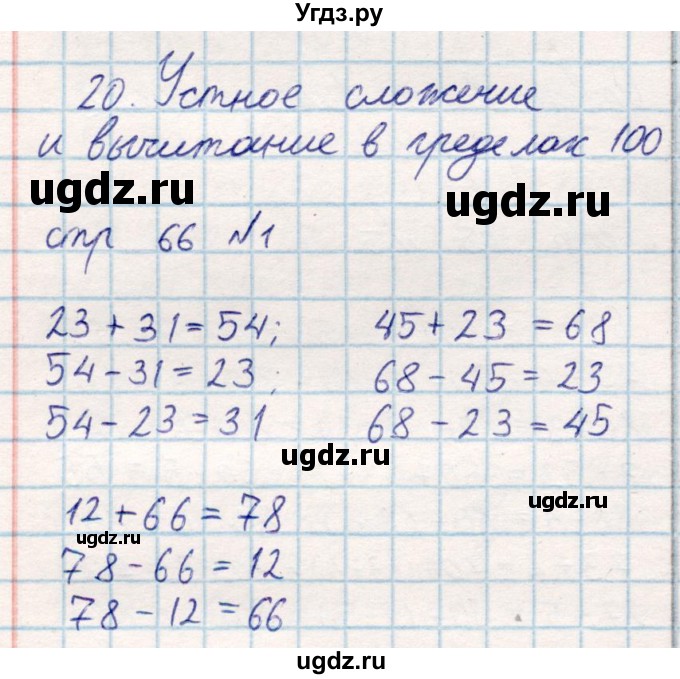 Угдз.ру
20. Устное сложение
и вычитание в пределах 100
ugdz.ru
ugdz.ru
стр 66 №1
23 + 31 = 54;
54 - 31 = 23;
54 - 23 = 31
45 + 23 = 68
68 - 45 = 23
68 - 23 = 45
ugdz.ru
ugdz.ru
12 + 66 = 78
ugdz.ru
78 - 66 = 12
78 - 12 = 66
ugdz.ru
ugdz.ru